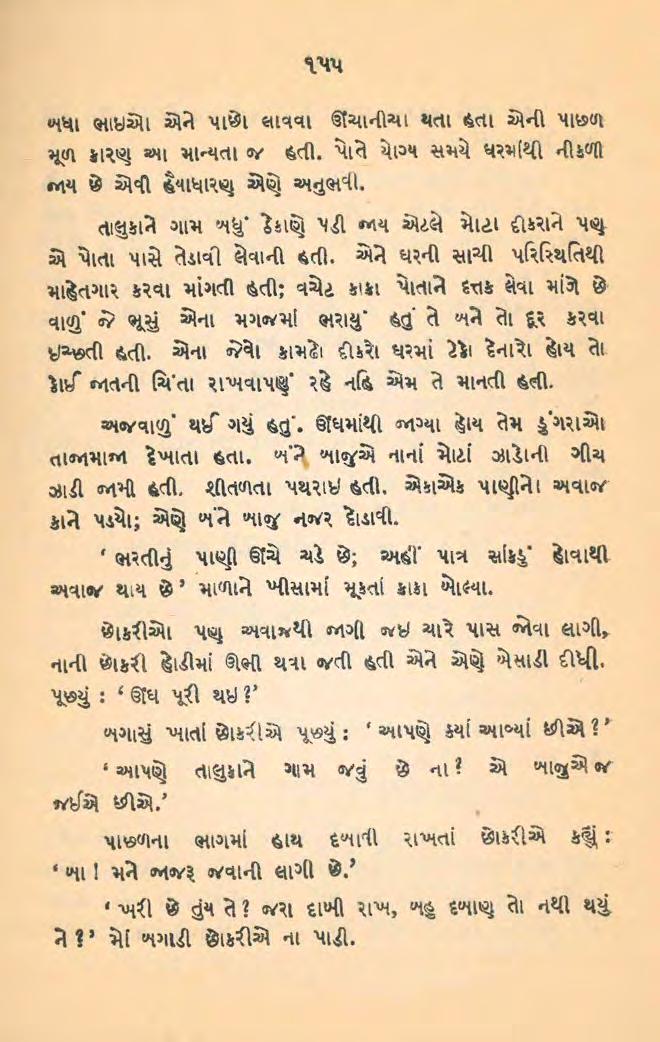 ૧૫૫
બધા ભાઇઓ એને પાછો લાવવા ઊંચાનીચા થતા હતા એની પાછળ
મૂળ કારણ આ માન્યતા જ હતી. પોતે યોગ્ય સમયે ઘરમાંથી નીકળી
જાય છે એવી હૈયાધારણ એણે અનુભવી.
તાલુકાને ગામ બધું ઠેકાણે પડી જાય એટલે મોટા દીકરાને પણ
એ પોતા પાસે તેડાવી લેવાની હતી. એને ઘરની સાચી પરિસ્થિતિથી
માહેતગાર કરવા માંગતી હતી; વચેટ કાકા પોતાને દત્તક લેવા માંગે છે
વાળું જે ભૂસું એના મગજમાં ભરાયું હતું તે બને તો દૂર કરવા
ઇચ્છતી હતી. એના જેવો કામઢો દીકરો ઘરમાં ટેકો દેનારો હોય તો
કોઈ જાતની ચિંતા રાખવાપણું રહે નહિ એમ તે માનતી હતી.
અજવાળું થઈ ગયું હતું. ઊંઘમાંથી જાગ્યા હોય તેમ ડુંગરાઓ
તાજામાજા દેખાતા હતા. બંને બાજુએ નાનાં મોટાં ઝાડોની ગીચ
ઝાડી જામી હતી. શીતળતા પથરાઇ હતી. એકાએક પાણીનો અવાજ
કાને પડયો; એણે બંને બાજુ નજર દોડાવી.
‘ ભરતીનું પાણી ઊંચે ચડે છે; અહીં પાત્ર સાંકડું હોવાથી
અવાજ થાય છે’ માળાને ખીસામાં મૂકતાં કાકા બોલ્યા.
છોકરીઓ પણ અવાજથી જાગી જઇ ચારે પાસ જોવા લાગી,
નાની છોકરી હોડીમાં ઊભી થવા જતી હતી એને એણે બેસાડી દીધી.
પૂછયું : ‘ ઊંઘ પૂરી થઇ ?’
બગાસું ખાતાં છોકરીએ પૂછયું : ‘ આપણે કયાં આવ્યાં છીએ ?’
‘ આપણે તાલુકાને ગામ જવું છે ના ? એ બાજુએ જ
જઈએ છીએ.’
પાછળના ભાગમાં હાથ દબાવી રાખતાં છોકરીએ કહ્યું :
‘ બા ! મને જાજરૂ જવાની લાગી છે.’
‘ ખરી છે તુંય તે ? જરા દાબી રાખ, બહુ દબાણ તો નથી થયું
ને ?’ મોં બગાડી છોકરીએ ના પાડી.